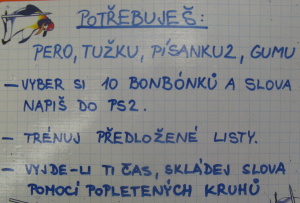 POTŘEBUJEŠ:
PERO, TUŽKU, PÍSANKU2, GUMU
– VYBER SI 10 BONBÓNKŮ A SLOVA
NAPIŠ DO PS2.
– TRÉNUJ PŘEDLOŽENÉ LISTY.
– VYJDE-LI TI ČAS, SKLÁDEJ SLOVA
POMOCÍ POPLETENÝCH KRUHŮ